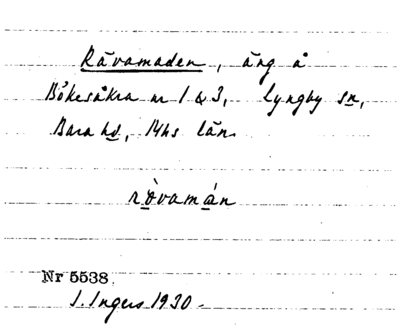 Rävamaden, äng å
Bökesåkra nr 1 & 3, Lyngby sn,
Bara hd, Mhs län.
ròvamán
Nr 5538
I. Ingers 1930.